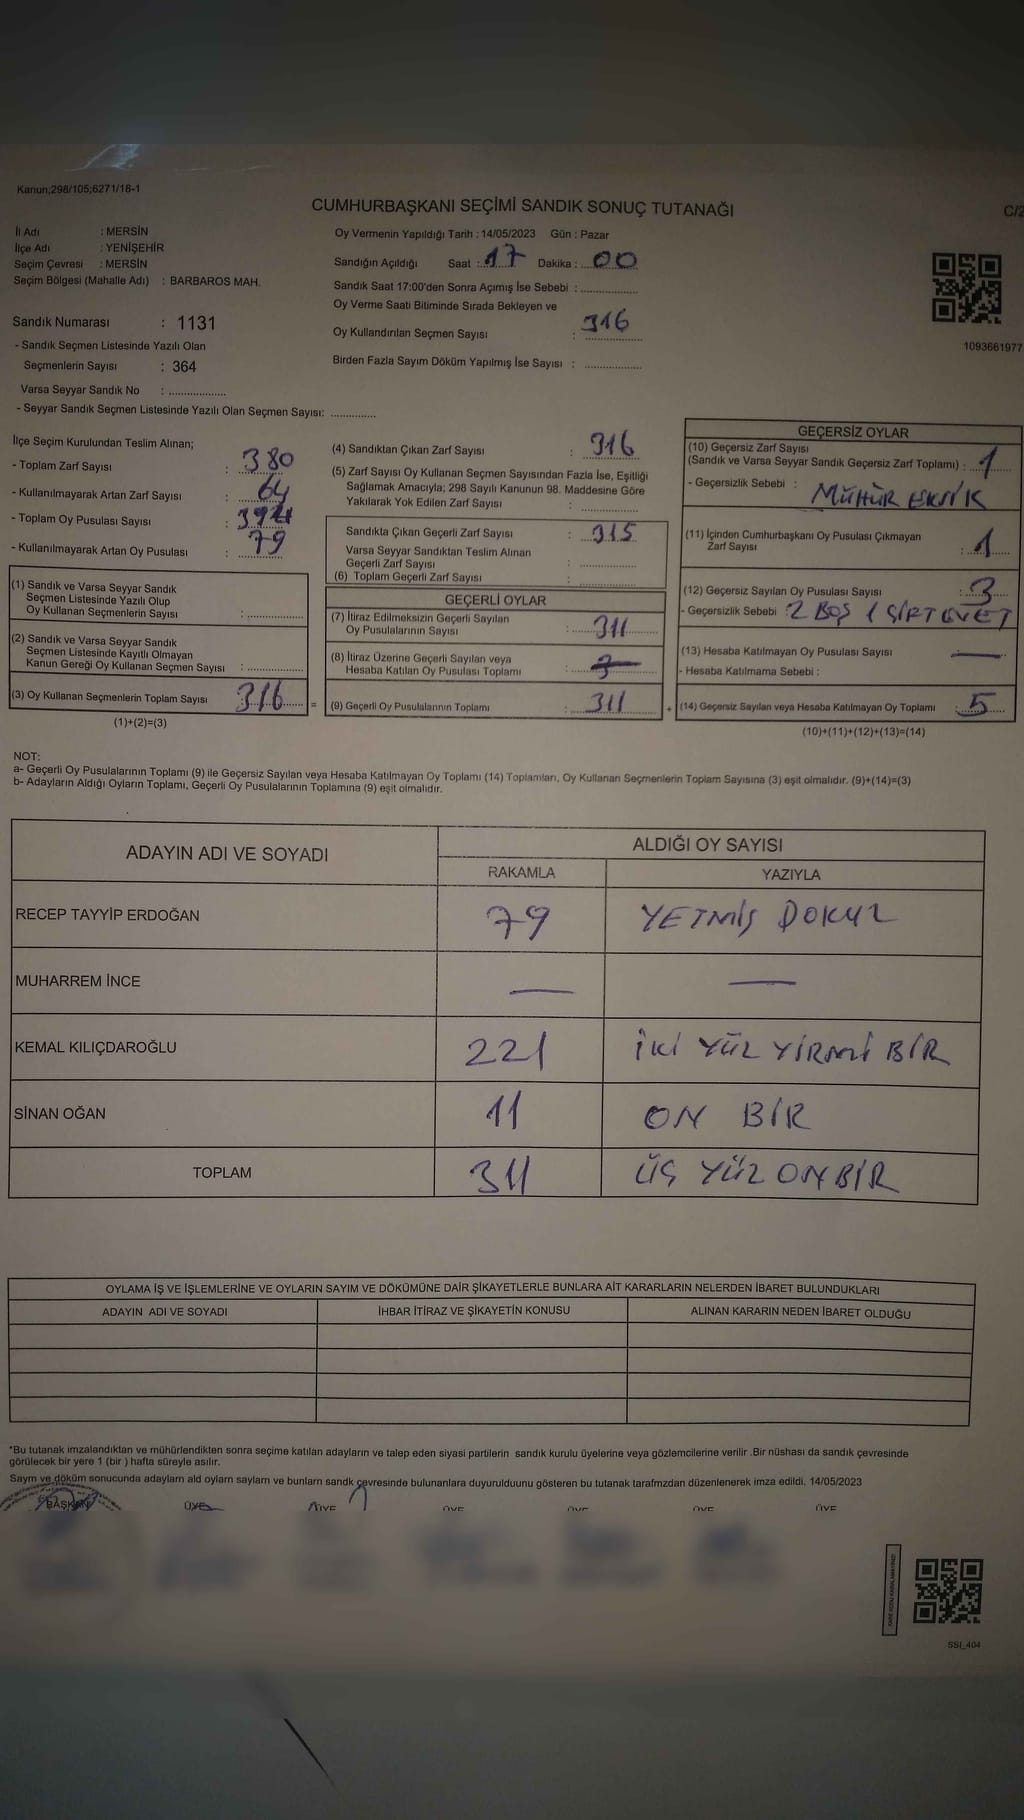 Kanun;298/105;6271/18-1
CUMHURBAŞKANI SEÇİMİ SANDIK SONUÇ TUTANAĞI
C/2
İl Adı : MERSİN
İlçe Adı : YENİŞEHİR
Seçim Çevresi : MERSİN
Seçim Bölgesi (Mahalle Adı) : BARBAROS MAH.
Oy Vermenin Yapıldığı Tarih : 14/05/2023 Gün : Pazar
Sandığın Açıldığı Saat : 17 Dakika : 00
Sandık Saat 17:00'den Sonra Açımış İse Sebebi :
Oy Verme Saati Bitiminde Sırada Bekleyen ve
Oy Kullandırılan Seçmen Sayısı : 316
Birden Fazla Sayım Döküm Yapılmış İse Sayısı :
1093661977
Sandık Numarası : 1131
- Sandık Seçmen Listesinde Yazılı Olan
Seçmenlerin Sayısı : 364
Varsa Seyyar Sandık No :
- Seyyar Sandık Seçmen Listesinde Yazılı Olan Seçmen Sayısı:
İlçe Seçim Kurulundan Teslim Alınan;
- Toplam Zarf Sayısı : 380
- Kullanılmayarak Artan Zarf Sayısı : 64
- Toplam Oy Pusulası Sayısı :
- Kullanılmayarak Artan Oy Pusulası : 79
(1) Sandık ve Varsa Seyyar Sandık
Seçmen Listesinde Yazılı Olup
Oy Kullanan Seçmenlerin Sayısı :
(2) Sandık ve Varsa Seyyar Sandık
Seçmen Listesinde Kayıtlı Olmayan
Kanun Gereği Oy Kullanan Seçmen Sayısı :
(3) Oy Kullanan Seçmenlerin Toplam Sayısı : 316 =
(1)+(2)=(3)
(4) Sandıktan Çıkan Zarf Sayısı : 316
(5) Zarf Sayısı Oy Kullanan Seçmen Sayısından Fazla İse, Eşitliği
Sağlamak Amacıyla; 298 Sayılı Kanunun 98. Maddesine Göre
Yakılarak Yok Edilen Zarf Sayısı :
Sandıkta Çıkan Geçerli Zarf Sayısı : 315
Varsa Seyyar Sandıktan Teslim Alınan
Geçerli Zarf Sayısı :
(6) Toplam Geçerli Zarf Sayısı :
GEÇERLİ OYLAR
(7) İtiraz Edilmeksizin Geçerli Sayılan
Oy Pusulalarının Sayısı : 311
(8) İtiraz Üzerine Geçerli Sayılan veya
Hesaba Katılan Oy Pusulası Toplamı :
(9) Geçerli Oy Pusulalarının Toplamı : 311 +
GEÇERSİZ OYLAR
(10) Geçersiz Zarf Sayısı
(Sandık ve Varsa Seyyar Sandık Geçersiz Zarf Toplamı) : 1
- Geçersizlik Sebebi : MÜHÜR EKSİK
(11) İçinden Cumhurbaşkanı Oy Pusulası Çıkmayan
Zarf Sayısı : 1
(12) Geçersiz Sayılan Oy Pusulası Sayısı : 3
- Geçersizlik Sebebi : 2 BOŞ 1
(13) Hesaba Katılmayan Oy Pusulası Sayısı —
- Hesaba Katılmama Sebebi :
(14) Geçersiz Sayılan veya Hesaba Katılmayan Oy Toplamı : 5
(10)+(11)+(12)+(13)=(14)
NOT:
a- Geçerli Oy Pusulalarının Toplamı (9) ile Geçersiz Sayılan veya Hesaba Katılmayan Oy Toplamı (14) Toplamları, Oy Kullanan Seçmenlerin Toplam Sayısına (3) eşit olmalıdır. (9)+(14)=(3)
b- Adayların Aldığı Oyların Toplamı, Geçerli Oy Pusulalarının Toplamına (9) eşit olmalıdır.
ADAYIN ADI VE SOYADI
ALDIĞI OY SAYISI
RAKAMLA YAZIYLA
RECEP TAYYİP ERDOĞAN 79 YETMİŞ DOKUZ
MUHARREM İNCE — —
KEMAL KILIÇDAROĞLU 221 İKİ YÜZ YİRMİ BİR
SİNAN OĞAN 11 ON BİR
TOPLAM 311 ÜÇ YÜZ ON BİR
OYLAMA İŞ VE İŞLEMLERİNE VE OYLARIN SAYIM VE DÖKÜMÜNE DAİR ŞİKAYETLERLE BUNLARA AİT KARARLARIN NELERDEN İBARET BULUNDUKLARI
ADAYIN ADI VE SOYADI İHBAR İTİRAZ VE ŞİKAYETİN KONUSU ALINAN KARARIN NEDEN İBARET OLDUĞU
*Bu tutanak imzalandıktan ve mühürlendikten sonra seçime katılan adayların ve talep eden siyasi partilerin sandık kurulu üyelerine veya gözlemcilerine verilir .Bir nüshası da sandık çevresinde
görülecek bir yere 1 (bir ) hafta süreyle asılır.
Sayım ve döküm sonucunda adayların ald oyların sayların ve bunların sandk çevresinde bulunanlara duyurulduunu gösteren bu tutanak tarafmzdan düzenlenerek imza edildi. 14/05/2023
BAŞKAN ÜYE ÜYE ÜYE ÜYE ÜYE ÜYE
SSI_404